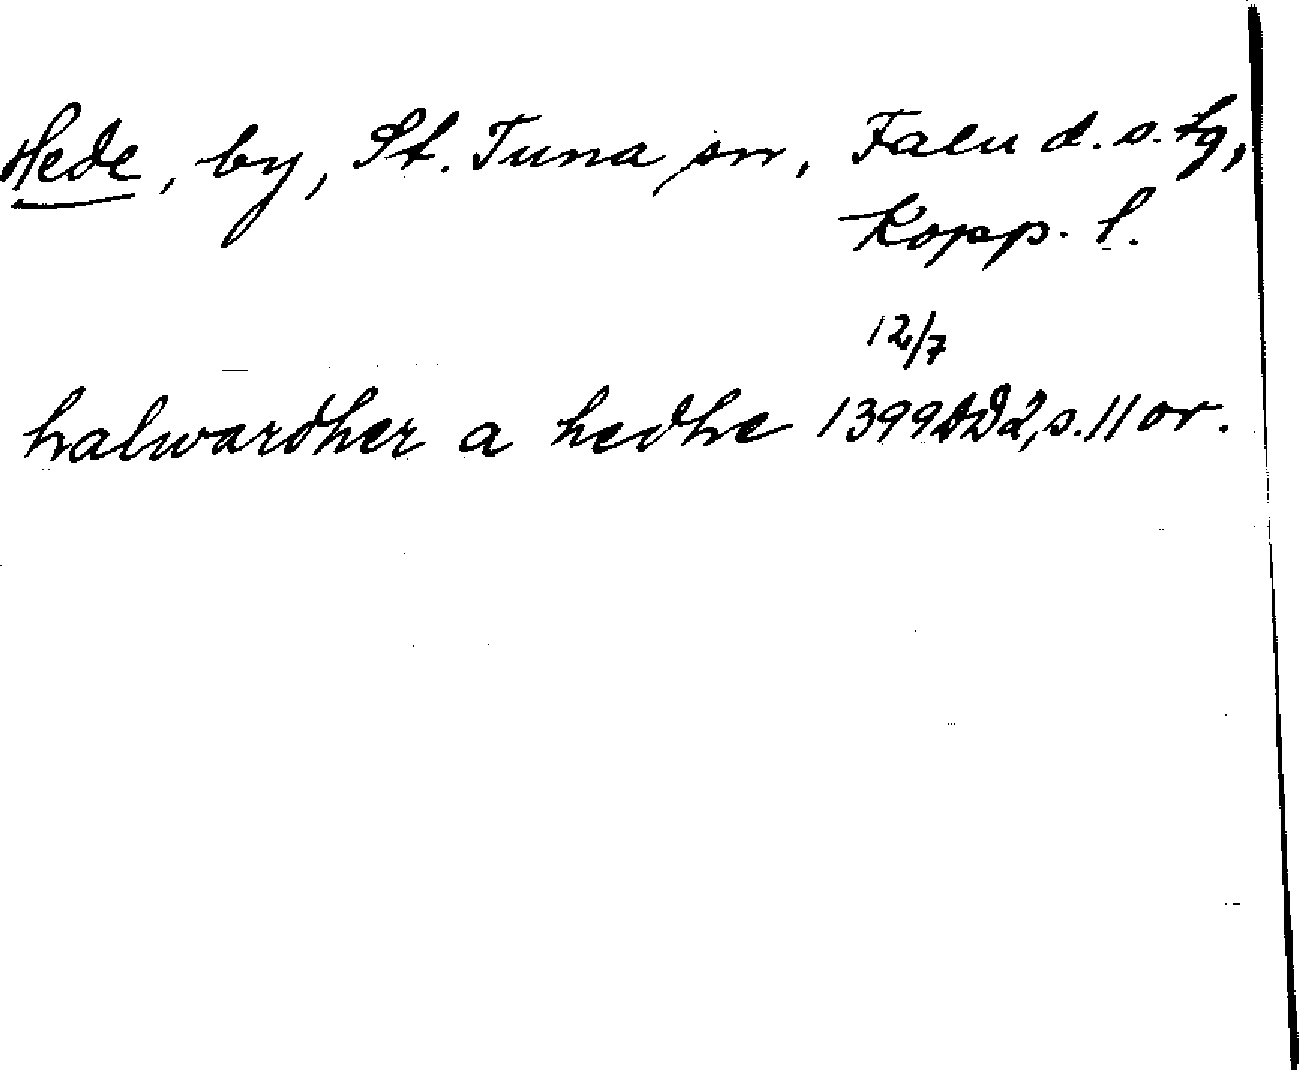 Hede, by, St. Tuna sn, Falu d.s. tg,
Kopp. l.
12/7
halwardher a hedhe 1399 DD2, s. 11 or.